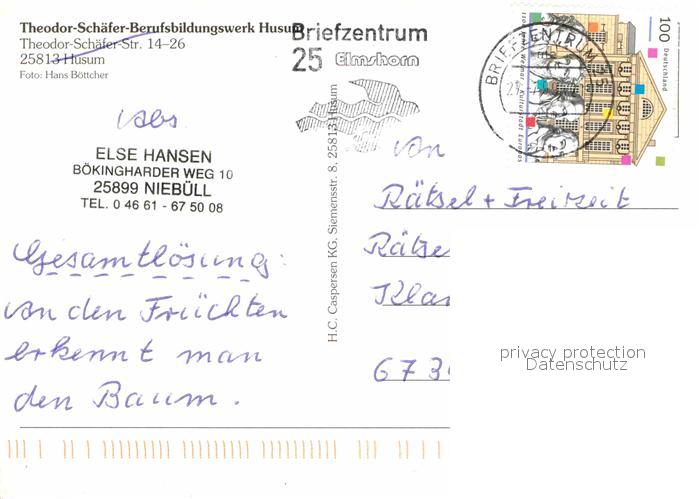 Theodor-Schäfer-Berufsbildungswerk Husum
Theodor-Schäfer-Str. 14–26
25813 Husum
Foto: Hans Böttcher
Briefzentrum
25 Elmshorn
BRIEFZENTRUM
100
Deutschland
Weimar Kulturstadt Europas
Abs.
ELSE HANSEN
BÖKINGHARDER WEG 10
25899 NIEBÜLL
TEL. 0 46 61 - 67 50 08
H.C. Caspersen KG, Siemensstr. 8, 25813 Husum
Gesamtlösung:
An den Früchten
erkennt man
den Baum.
An
Rätsel + Freizeit
Rätse
Kla
673
privacy protection
Datenschutz